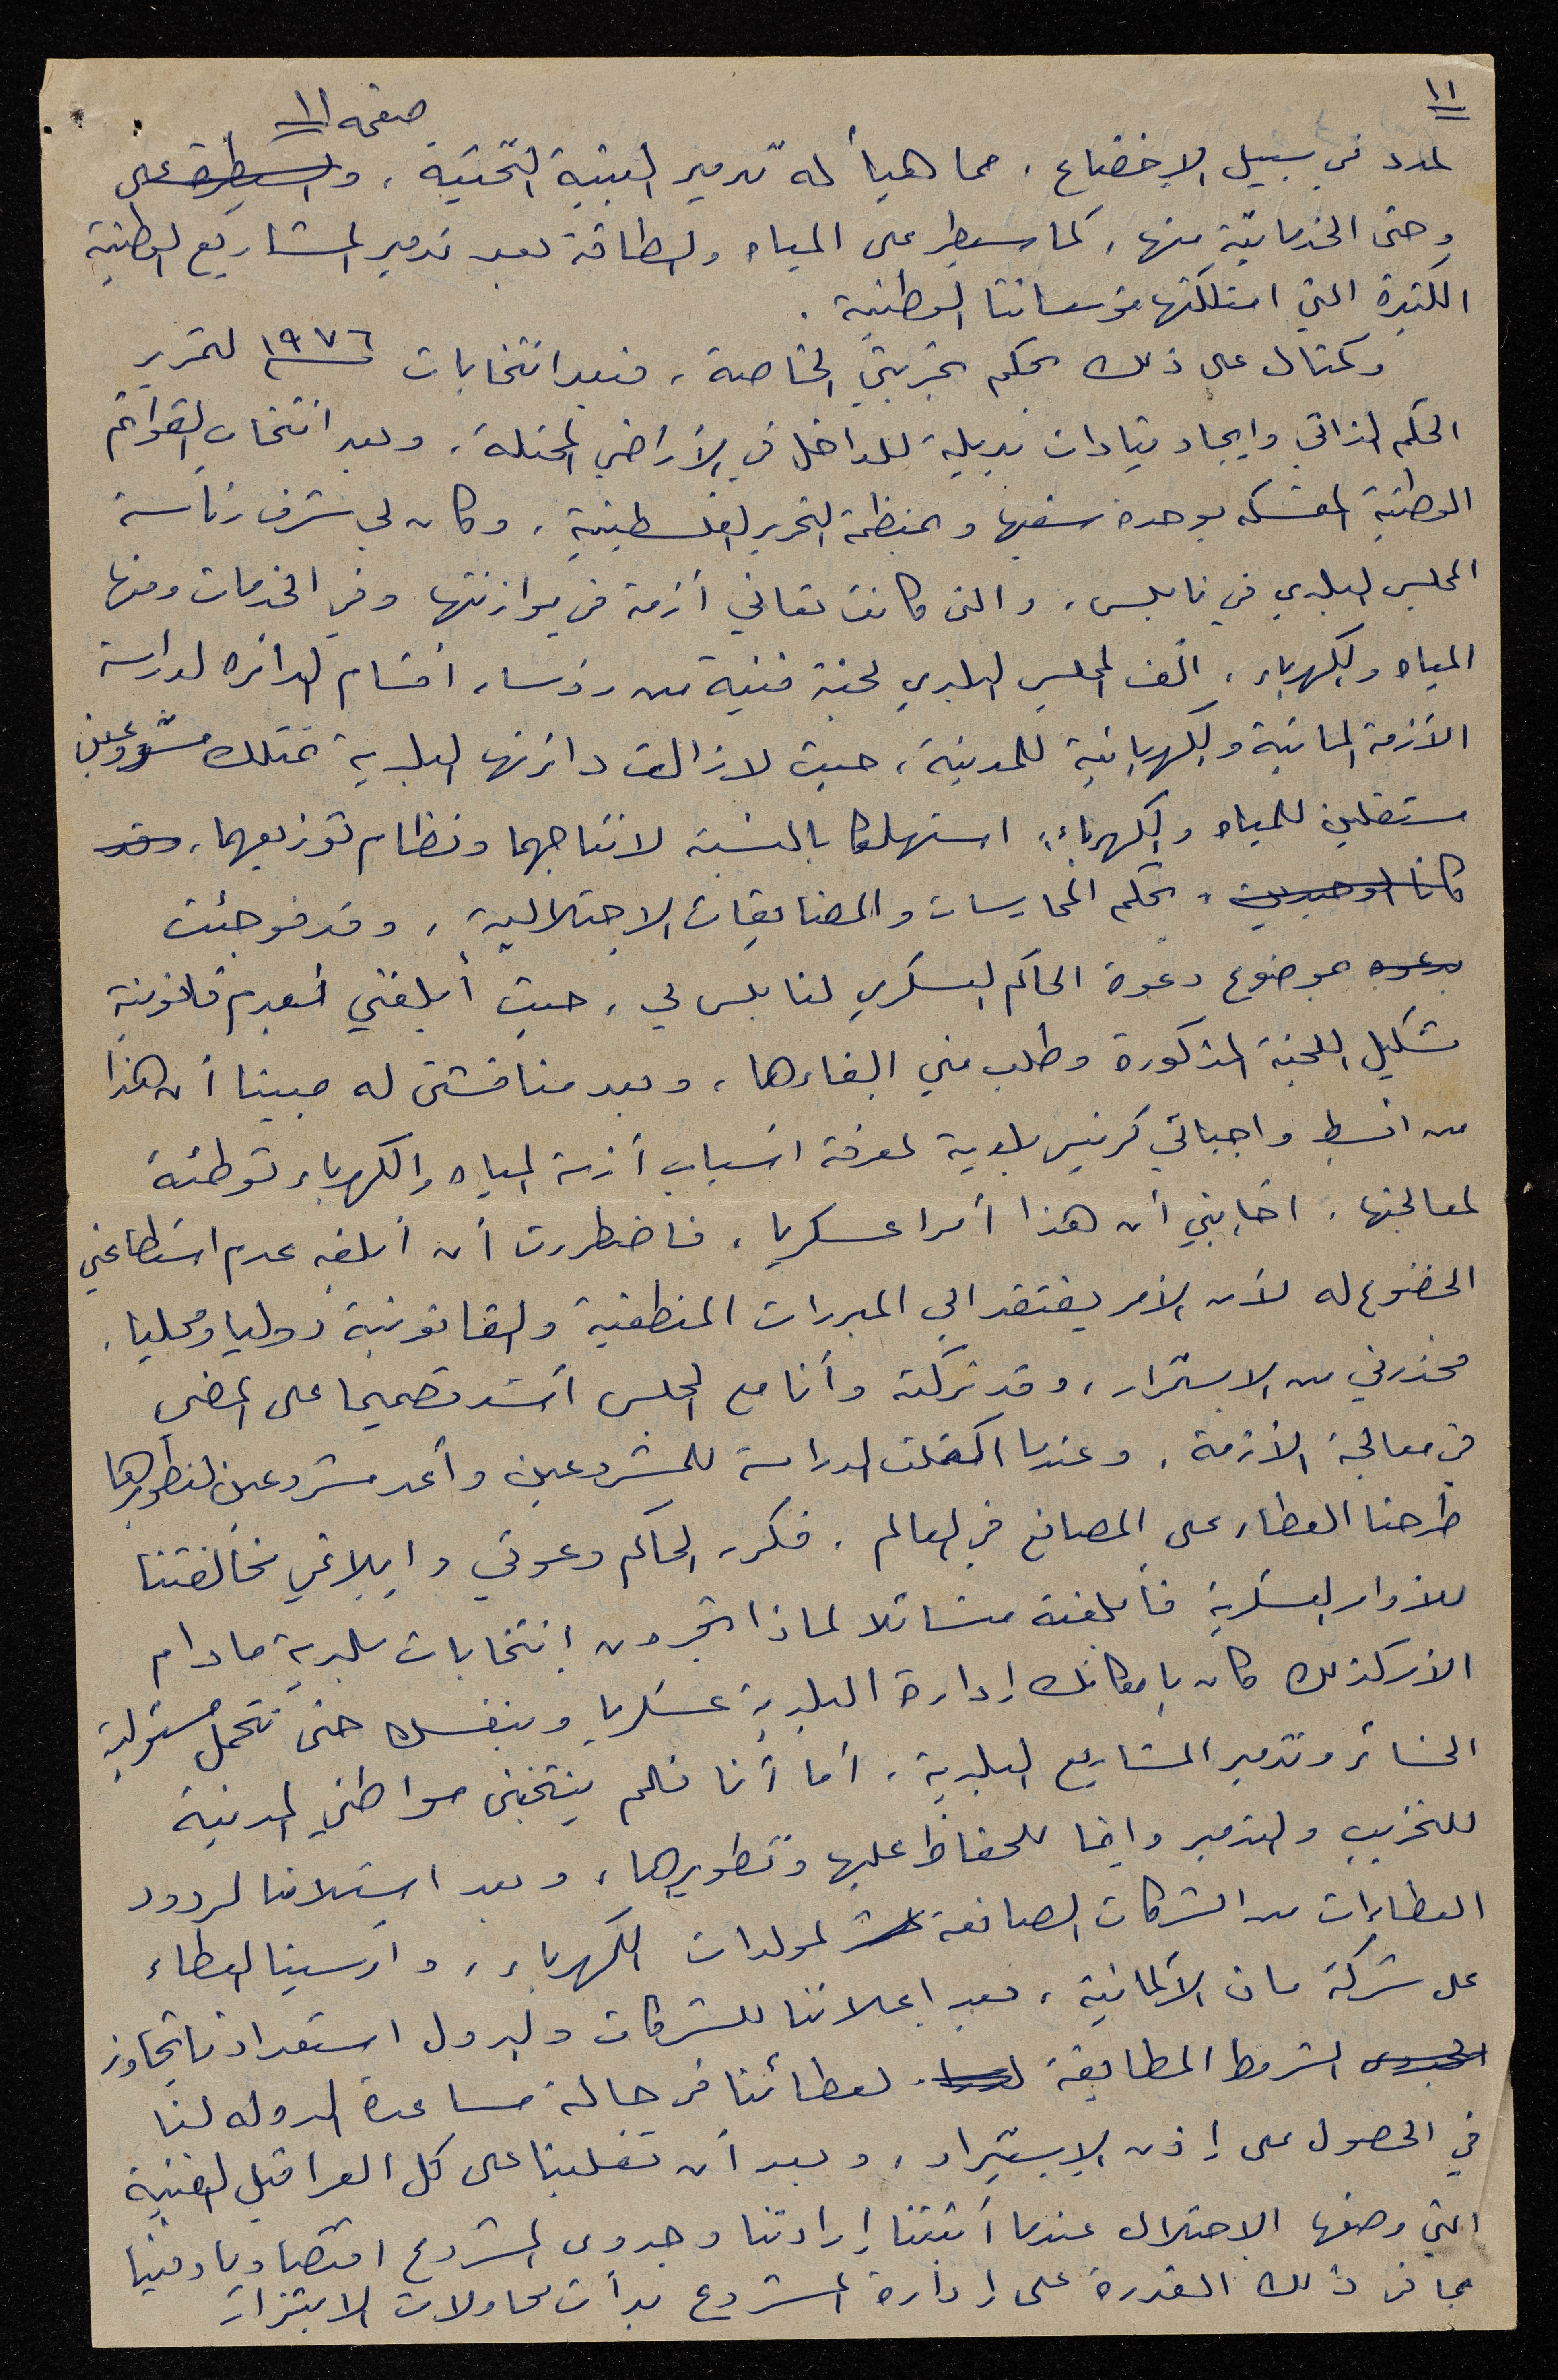 ١١
صفحة ١١
لمدد في سبيل الإخضاع، مما هيأ له تدمير البنية التحتية، والسيطرة على
وحتى الخدماتية منها، كما سيطر على المياه والطاقة بعد تدمير المشاريع الوطنية
الكثيرة التي امتلكتها مؤسساتنا الوطنية.
وكمثال على ذلك بحكم تجربتي الخاصة، فبعد انتخابات ١٩٧٦ لتمرير
الحكم الذاتي وايجاد قيادات بديلة للداخل في الأراضي المحتلة، وبعد انتخاب القوائم
الوطنية المتمسكه بوحدة شعبها وبمنظمة التحرير الفلسطينية، وكان لي شرف رئاسة
المجلس البلدي في نابلس، والتي كانت تعاني أزمة في موازنتها وفي الخدمات ومنها
المياه والكهرباء، ألف المجلس البلدي لجنة فنية من رؤساء اقسام الدائره لدراسة
الأزمة المائية والكهربائية للمدينة، حيث لازالت دائرتها البلدية تمتلك مشروعين
مستقلين للمياه والكهرباء، استهلكا بالنسبة لانتاجهما ونظام توزيعهما، وقد
كانا الوحيدين، بحكم الممارسات والمضايقات الاحتلالية، وقد فوجئت
بدعوه بموضوع دعوة الحاكم العسكري لنابلس لي، حيث أبلغني بعدم قانونية
تشكيل اللجنة المذكورة وطلب مني الغاءها، وبعد مناقشتي له مبينا أن هذا
من ابسط واجباتي كرئيس بلدية لمعرفة اسباب أزمة المياه والكهرباء توطئة
لمعالجتها، اجابني أن هذا أمرا عسكريا، فاضطررت أن أبلغه عدم استطاعتي
الخضوع له لأن الأمر يفتقد الى المبررات المنطقية والقانونية دوليا ومحليا،
محذرني من الاستمرار، وقد تركته وأنا مع المجلس أشد تصميما على المضي
في معالجة الأزمة، وعندما اكتملت الدراسة للمشروعين وأعد مشروعين لتطويرهما
طرحنا العطاء على المصانع في العالم، فكرر الحاكم دعوتي وابلاغي مخالفتنا
للأوامر العسكرية فأبلغته متسائلا لماذا تجرون انتخابات بلدية ما دام
الأمر كذلك كان بامكانك إدارة البلدية عسكريا وبنفسك حتى تتحمل مسئولية
الخسائر وتدمير المشاريع البلدية، أما أنا فلم ينتخبني مواطني المدينة
للتخريب والتدمير وإنما للحفاظ عليها وتطويرها، وبعد استلامنا لردود
العطاءات من الشركات الصانعة لمولدات الكهرباء، وارسينا العطاء
على شركة مان الألمانية، فبعد إعلاننا للشركات والدول استعدادنا تجاوز
الشروط المطابقة لعطائنا في حالة مساعدة الدوله لنا
في الحصول على إذن الإستيراد، وبعد أن تغلبنا على كل العراقيل الفنية
التي وضعها الاحتلال عندما أثبتنا إرادتنا وجدوى المشروع اقتصاديا وفنيا
بما في ذلك القدرة على إدارة المشروع بدأت محاولات الابتزاز